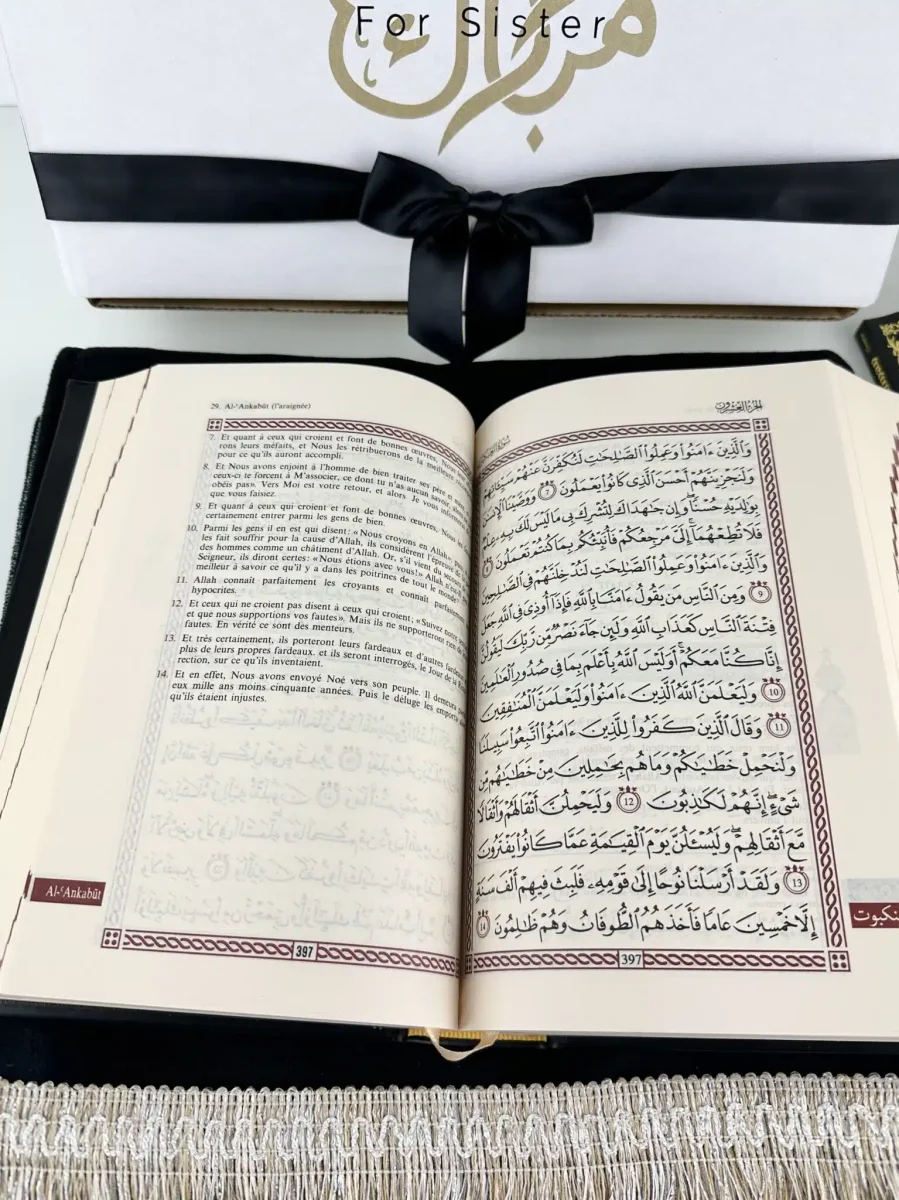 For Sister
مبارك
29. Al-ʿAnkabūt (l'araignée)
7. Et quant à ceux qui croient et font de bonnes œuvres, Nous
rons leurs méfaits, et Nous les rétribuerons de la meilleure
pour ce qu'ils auront accompli.
8. Et Nous avons enjoint à l'homme de bien traiter ses père et
ceux-ci te forcent à M'associer, ce dont tu n'as aucun savoir,
obéis pas». Vers Moi est votre retour, et alors Je vous
que vous faisiez.
9. Et quant à ceux qui croient et font de bonnes œuvres, Nous
certainement entrer parmi les gens de bien.
10. Parmi les gens il en est qui disent: «Nous croyons en Allah»;
les fait souffrir pour la cause d'Allah, ils considèrent l'épreuve de la
des hommes comme un châtiment d'Allah. Or, s'il vient du secours
Seigneur, ils diront certes: «Nous étions avec vous!» Allah n'est-Il
meilleur à savoir ce qu'il y a dans les poitrines de tout le monde?
11. Allah connaît parfaitement les croyants et connaît parfaitement
hypocrites.
12. Et ceux qui ne croient pas disent à ceux qui croient: «Suivez notre
et que nous supportions vos fautes». Mais ils ne supporteront rien de
fautes. En vérité ce sont des menteurs.
13. Et très certainement, ils porteront leurs fardeaux et d'autres fardeaux
plus de leurs propres fardeaux. et ils seront interrogés, le Jour de la
rection, sur ce qu'ils inventaient.
14. Et en effet, Nous avons envoyé Noé vers son peuple. Il demeura
eux mille ans moins cinquante années. Puis le déluge les emporta
qu'ils étaient injustes.
Al-ʿAnkabūt
397
الجزء العشرون
وَالَّذِينَ ءَامَنُوا وَعَمِلُوا الصَّالِحَاتِ لَنُكَفِّرَنَّ عَنْهُمْ سَيِّئَاتِهِمْ
وَلَنَجْزِيَنَّهُمْ أَحْسَنَ الَّذِي كَانُوا يَعْمَلُونَ 7 وَوَصَّيْنَا الْإِنسَانَ
بِوَالِدَيْهِ حُسْنًا وَإِن جَاهَدَاكَ لِتُشْرِكَ بِي مَا لَيْسَ لَكَ بِهِ عِلْمٌ
فَلَا تُطِعْهُمَا إِلَيَّ مَرْجِعُكُمْ فَأُنَبِّئُكُم بِمَا كُنتُمْ تَعْمَلُونَ 8
وَالَّذِينَ ءَامَنُوا وَعَمِلُوا الصَّالِحَاتِ لَنُدْخِلَنَّهُمْ فِي الصَّالِحِينَ
9 وَمِنَ النَّاسِ مَن يَقُولُ ءَامَنَّا بِاللَّهِ فَإِذَا أُوذِيَ فِي اللَّهِ جَعَلَ
فِتْنَةَ النَّاسِ كَعَذَابِ اللَّهِ وَلَئِن جَاءَ نَصْرٌ مِّن رَّبِّكَ لَيَقُولُنَّ
إِنَّا كُنَّا مَعَكُمْ أَوَلَيْسَ اللَّهُ بِأَعْلَمَ بِمَا فِي صُدُورِ الْعَالَمِينَ
10 وَلَيَعْلَمَنَّ اللَّهُ الَّذِينَ ءَامَنُوا وَلَيَعْلَمَنَّ الْمُنَافِقِينَ
11 وَقَالَ الَّذِينَ كَفَرُوا لِلَّذِينَ ءَامَنُوا اتَّبِعُوا سَبِيلَنَا
وَلْنَحْمِلْ خَطَايَاكُمْ وَمَا هُم بِحَامِلِينَ مِنْ خَطَايَاهُم مِّن
شَيْءٍ إِنَّهُمْ لَكَاذِبُونَ 12 وَلَيَحْمِلُنَّ أَثْقَالَهُمْ وَأَثْقَالًا
مَّعَ أَثْقَالِهِمْ وَلَيُسْئَلُنَّ يَوْمَ الْقِيَامَةِ عَمَّا كَانُوا يَفْتَرُونَ
13 وَلَقَدْ أَرْسَلْنَا نُوحًا إِلَى قَوْمِهِ فَلَبِثَ فِيهِمْ أَلْفَ سَنَةٍ
إِلَّا خَمْسِينَ عَامًا فَأَخَذَهُمُ الطُّوفَانُ وَهُمْ ظَالِمُونَ 14
نكبوت
397